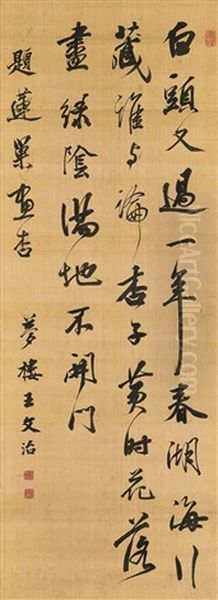 白頭又過一年春湖海行
藏誰与論杏子黄时花落
盡綠陰滿地不開門
題蓮巢画杏
夢樓王文治